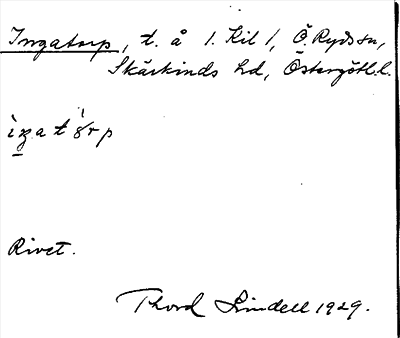 Ingatorp, t. å 1. Kil 1, Ö. Ryds sn,
Skärkinds hd, Östergötl. l.
Rivet.
Thord Lindell 1929.